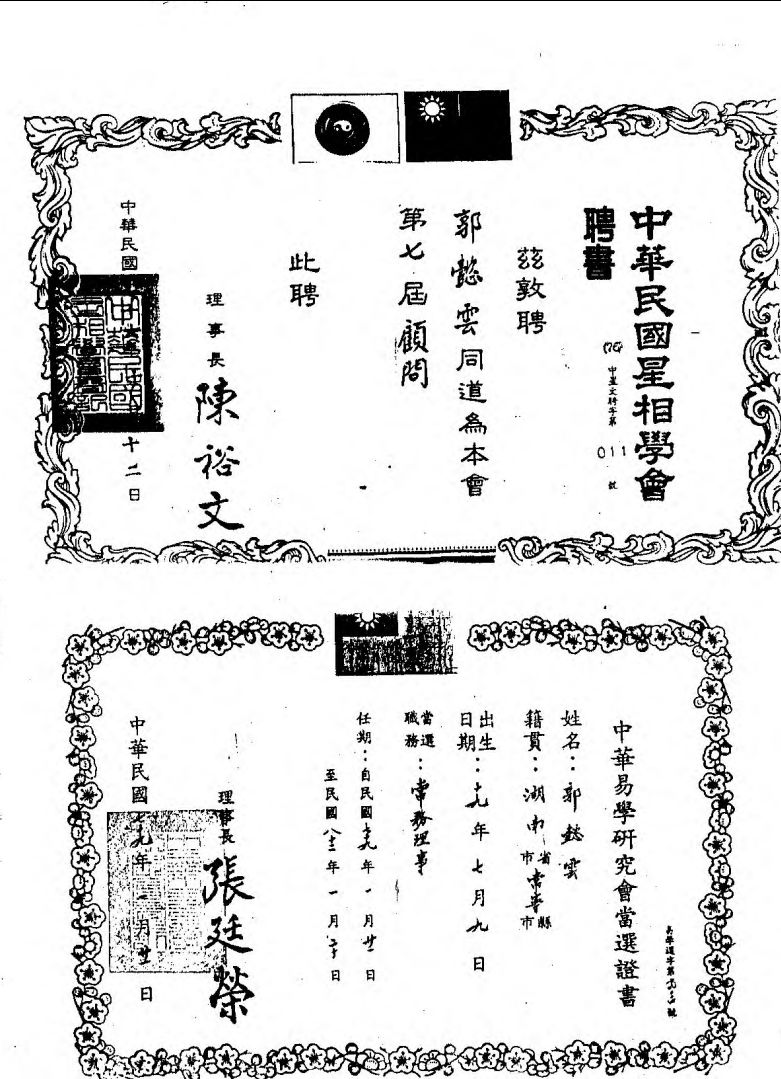 中華民國星相學會
聘書
中星文聘字第011號
茲敦聘
郭懿雲同道為本會
第七屆顧問
此聘
理事長 陳裕文
中華民國
十二日
中華易學研究會當選證書
姓名：郭懿雲
籍貫：湖南省市常寧縣市
出生日期：十九年七月九日
當選職務：常務理事
任期：自民國七九年一月廿一日
至民國八二年一月二十日
理事長 張廷榮
中華民國七九年一月廿一日